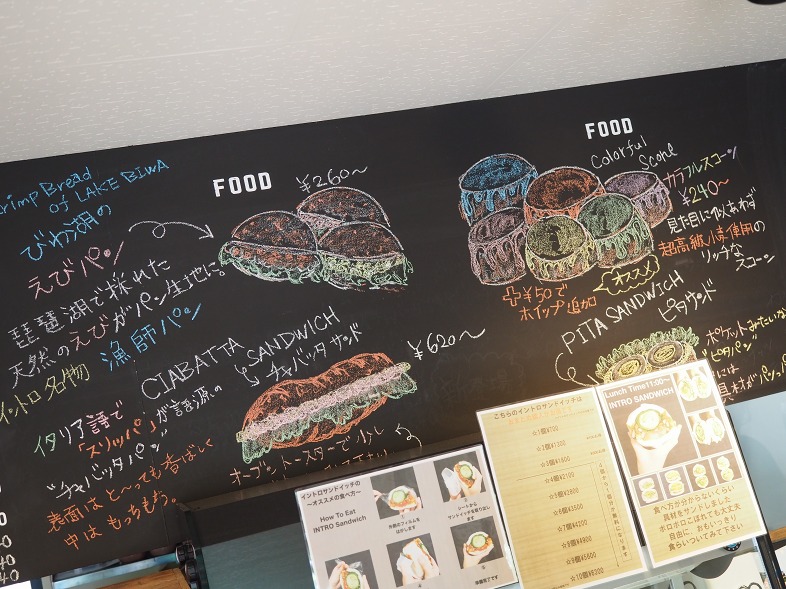 Shrimp Bread
of LAKE BIWA
びわ湖の
えびパン
琵琶湖で採れた
天然のえびがパン生地に。
イントロ名物 漁師パン
FOOD
¥260〜
CIABATTA
SANDWICH
チャバッタサンド
¥620〜
イタリア語で
「スリッパ」が語源の
"チャバッタパン"
表面はと〜っても香ばしく
中はもっちもち。
オーブントースターで少し
FOOD
Colorful
Scone
カラフルスコーン
¥240〜
見た目に似あわず
超高級小麦使用の
リッチな
スコーン
オススメ
+¥50で
ホイップ追加
PITA SANDWICH
ピタサンド
ポケットみたいな
"ピタパン"
には
具材がパンパ
イントロサンドイッチの
〜オススメの食べ方〜
How To Eat
INTRO Sandwich
こちらのイントロサンドイッチは
☆1個¥700
☆2個¥1300
☆3個¥1800
☆4個¥2100
☆5個¥2800
☆6個¥3500
☆7個¥4200
☆8個¥4900
☆9個¥5600
☆10個¥6300
Lunch Time11:00〜
INTRO SANDWICH
食べ方が分からないくらい
具材をサンドしました
ボロボロこぼれても大丈夫
自由に おもいっきり
食らいついてみて下さい